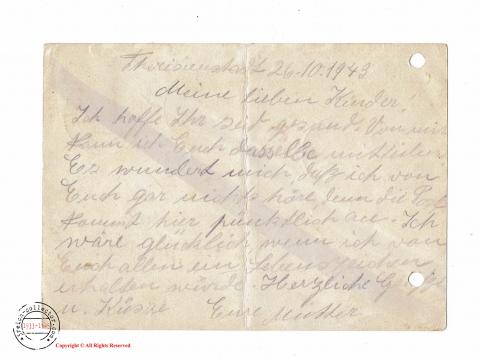 Theresienstadt 26.10.1943
Meine lieben Kinder!
Ich hoffe Ihr seit gesund. Von mir
kann ich Euch dasselbe mitteilen
Es wundert mich daß ich von
Euch gar nichts höre denn die Post
kommt hier pünktlich an. Ich
wäre glücklich wenn ich von
Euch allen ein Lebenszeichen
erhalten würde. Herzliche Grüße
u. Küsse Eure Mutter
1933-1945
Copyright © All Rights Reserved